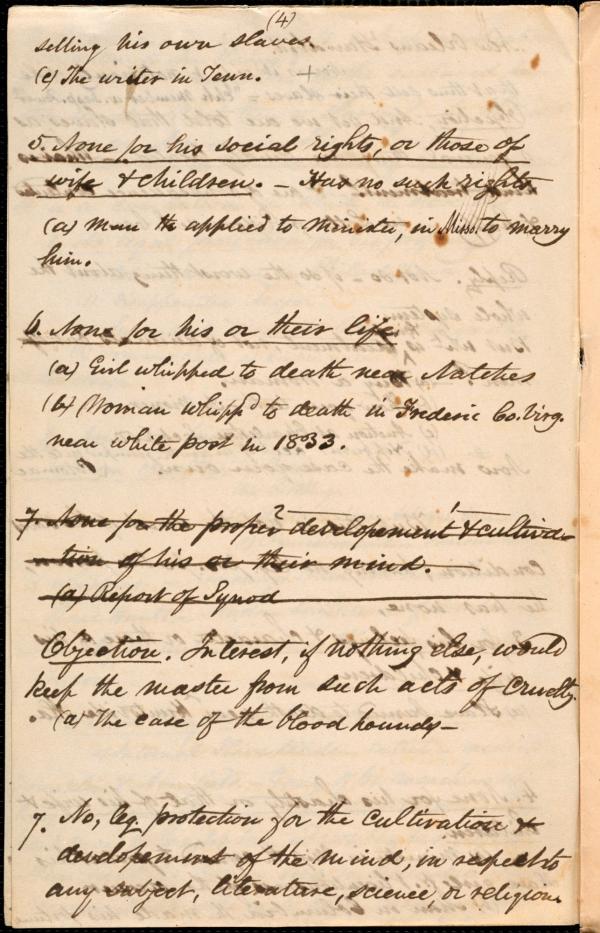 (4)
selling his own slaves.
(c) The writer in Tenn. +
5. None for his social rights, or those of
wife & children. – Has no such rights
(a) man applied to minister, in Miss. to marry
him.
6. None for his or their life.
(a) Girl whipped to death near Natches
(b) Woman whippd to death in Frederic Co. Virg.
near white post in 1833.
7. None for the proper developement & cultiva-
tion of his or their mind.
(a) Report of Synod
Objection. Interest, if nothing else, would
keep the master from such acts of cruelty.
(a) The case of the blood hounds –
7. No, leg. protection for the cultivation &
developement of the mind, in respect to
any subject, literature, science, or religion.